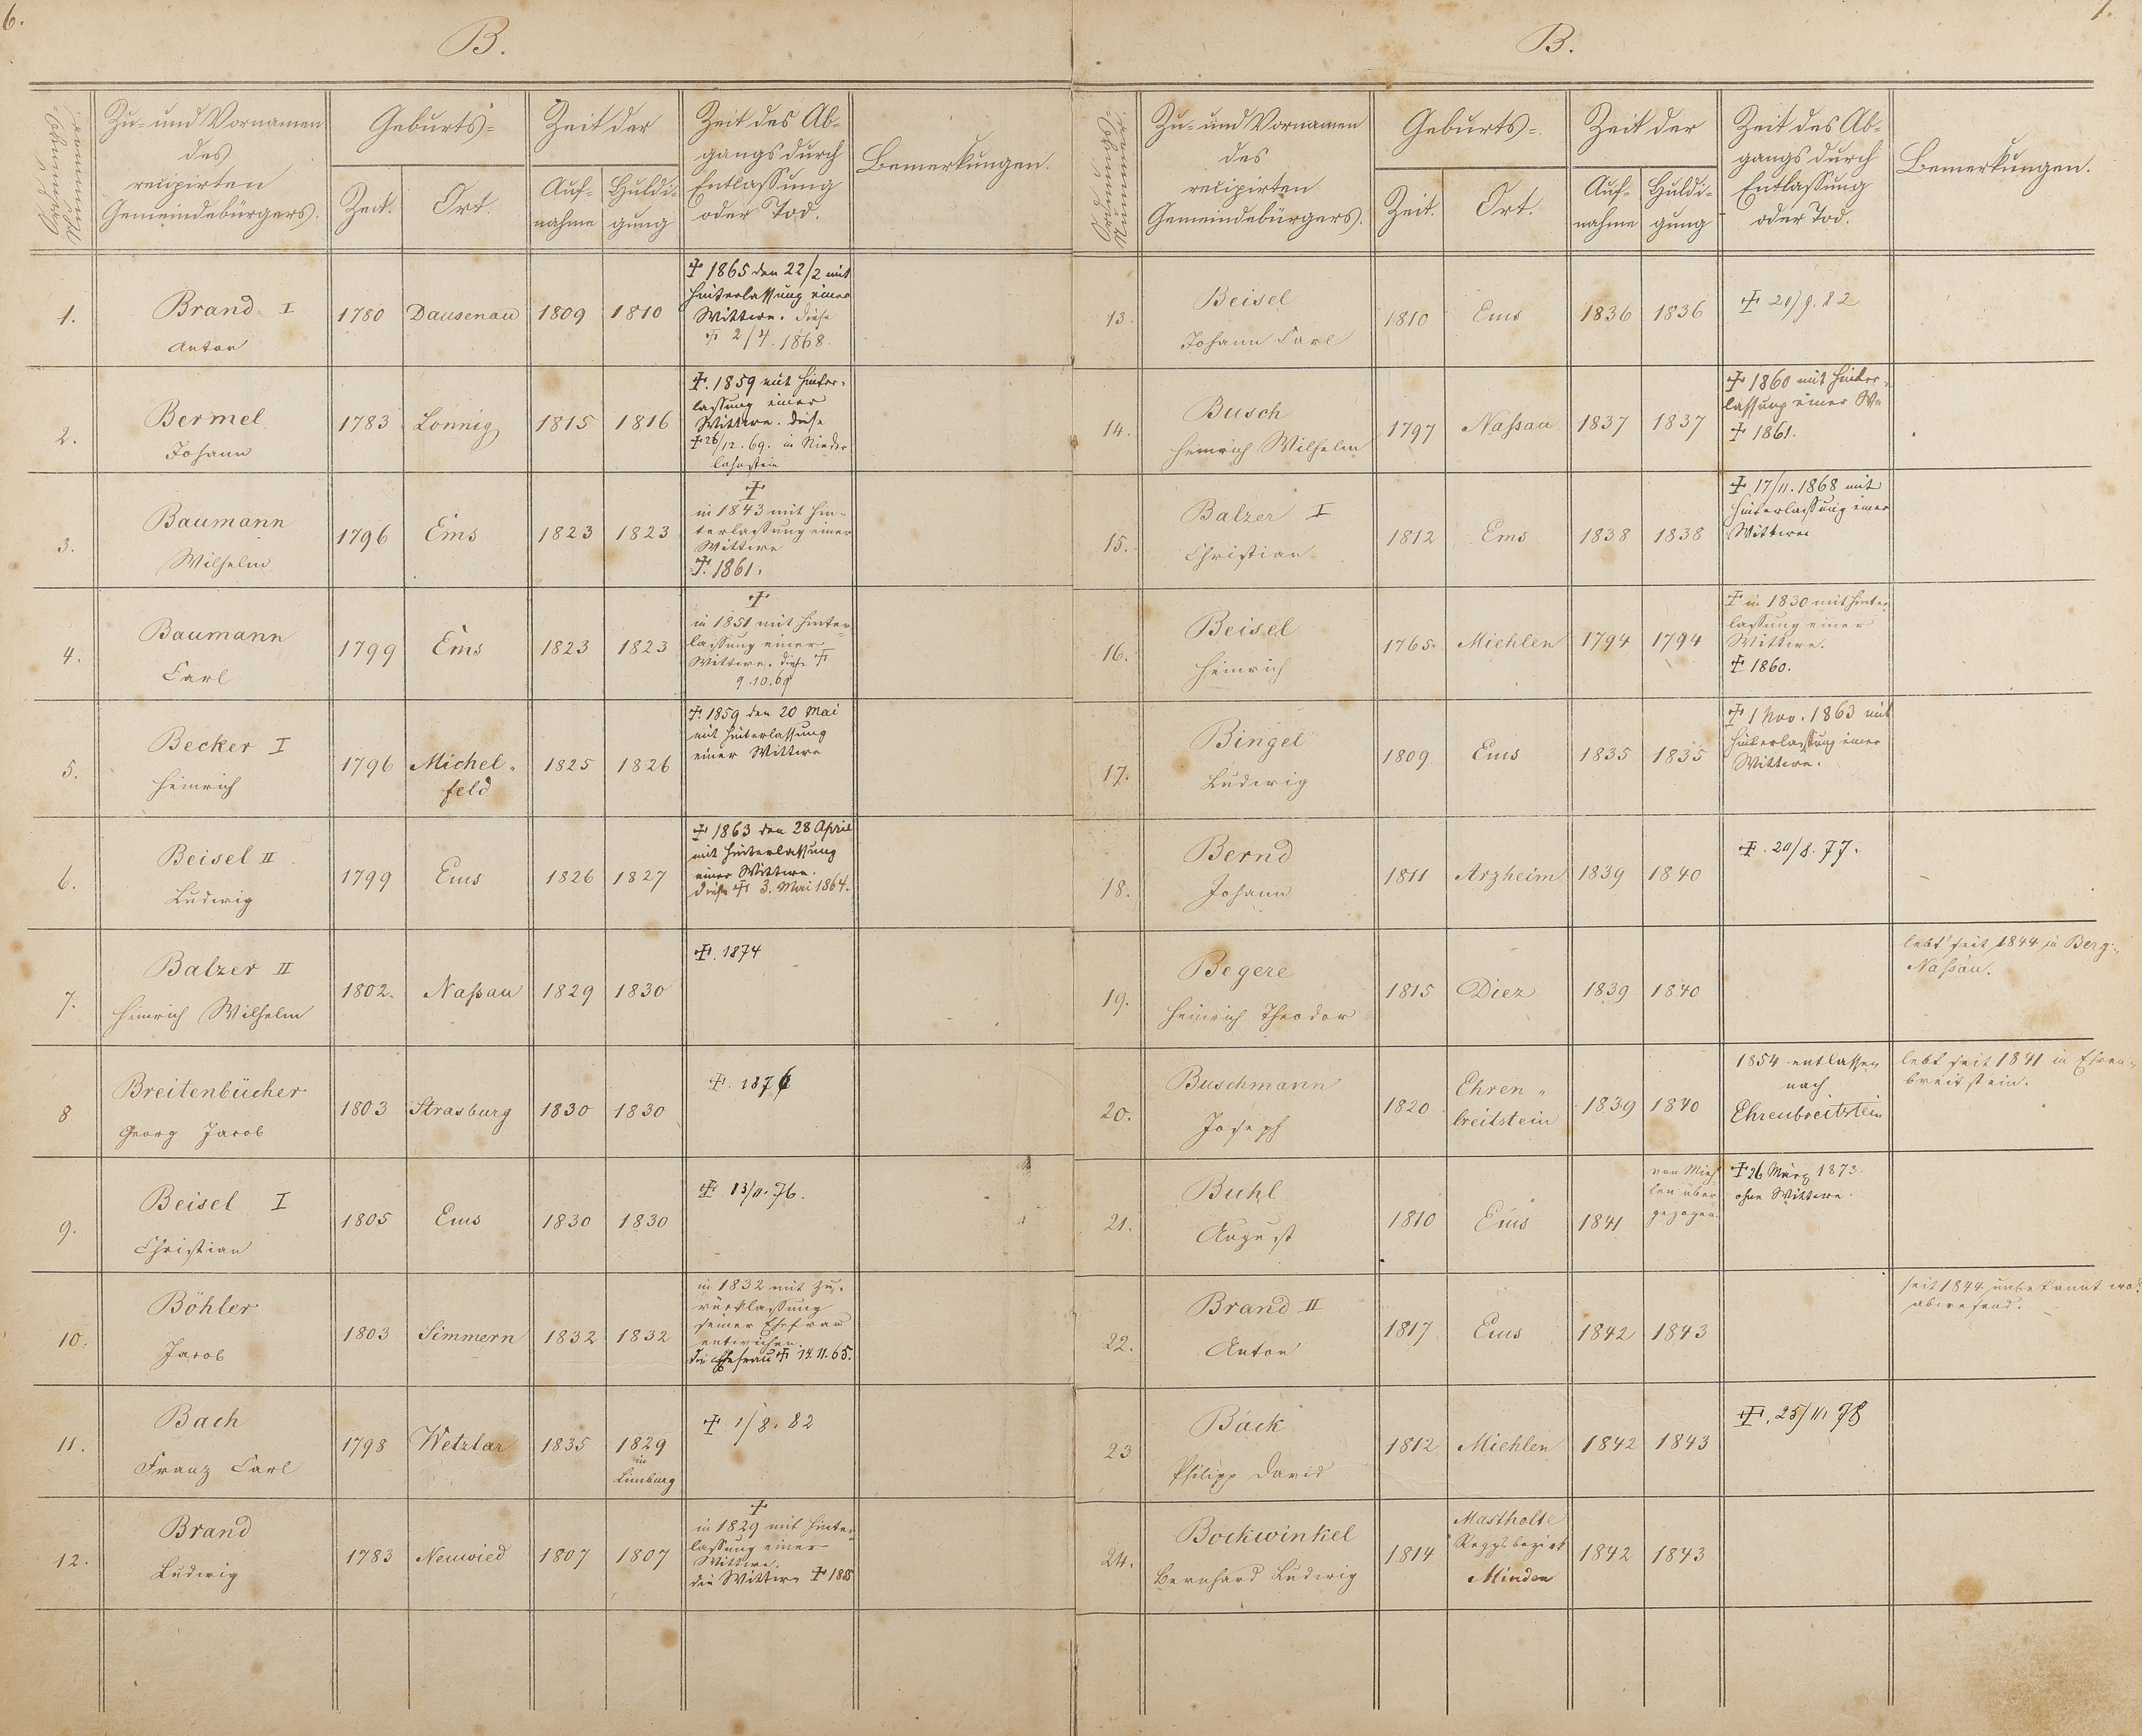 6.
B.
Ordnungsnummer.
Zu- und Vornamen
des
recipirten
Gemeindebürgers.
Geburts-
Zeit.
Ort.
Zeit der
Auf-
nahme
Huldi-
gung
Zeit des Ab-
gangs durch
Entlassung
oder Tod.
Bemerkungen.
1.
Brand I
Anton
1780
Dausenau
1809
1810
† 1865 den 22/2 mit
Hinterlassung einer
Wittwe. diese
† 2/4. 1868.
2.
Bermel
Johann
1783
Lonnig
1815
1816
†. 1859 mit Hinter-
lassung einer
Wittwe. diese
† 26/12. 69. in Nieder
lahnstein
3.
Baumann
Wilhelm
1796
Ems
1823
1823
†
in 1843 mit Hin-
terlassung einer
Wittwe
†. 1861.
4.
Baumann
Carl
1799
Ems
1823
1823
†
in 1851 mit Hinter-
lassung einer
Wittwe. diese †
9.10.69
5.
Becker I
Heinrich
1796
Michel-
feld
1825
1826
†. 1859 den 20 Mai
mit Hinterlassung
einer Wittwe
6.
Beisel II
Ludwig
1799
Ems
1826
1827
† 1863 den 28 April
mit Hinterlassung
einer Wittwe.
diese † 3. Mai 1864.
7.
Balzer II
Heinrich Wilhelm
1802.
Naßau
1829
1830
†. 1874
8
Breitenbücher
Georg Jacob
1803
Strasburg
1830
1830
†. 1876
9.
Beisel I
Christian
1805
Ems
1830
1830
† 13/11. 76.
10.
Böhler
Jacob
1803
Simmern
1832
1832
in 1832 mit Zu-
rücklassung
seiner Ehefrau
entwichen.
die Ehefrau † 14.11.65.
11.
Bach
Franz Carl
1798
Wetzlar
1835
1829
in
Limburg
† 1/8. 82
12.
Brand
Ludwig
1783
Neuwied
1807
1807
†
in 1829 mit Hinter-
lassung einer
Wittwe.
die Wittwe †
B.
Ordnungsnummer.
Zu- und Vornamen
des
recipirten
Gemeindebürgers.
Geburts-
Zeit.
Ort.
Zeit der
Auf-
nahme
Huldi-
gung
Zeit des Ab-
gangs durch
Entlassung
oder Tod.
Bemerkungen.
13.
Beisel
Johann Carl
1810
Ems
1836
1836
† 20/9. 82
14.
Busch
Heinrich Wilhelm
1797
Naßau
1837
1837
† 1860 mit Hinter-
lassung einer We
† 1861.
15.
Balzer I
Christian
1812
Ems
1838
1838
† 17/11. 1868 mit
Hinterlassung einer
Wittwe
16.
Beisel
Heinrich
1765.
Miehlen
1794
1794
† in 1830 mit Hinter
lassung einer
Wittwe.
† 1860.
17.
Bingel
Ludwig
1809
Ems
1835
1835
† 1 Nov. 1863 mit
Hinterlassung einer
Wittwe.
18.
Bernd
Johann
1811
Arzheim
1839
1840
†. 20/8. 77.
19.
Begere
Heinrich Theodor
1815
Diez
1839
1840
lebt seit 1844 in Berg-
Naßau.
20.
Buschmann
Joseph
1820
Ehren-
breitstein
1839
1840
1854 entlassen
nach
Ehrenbreitstein
lebt seit 1841 in Ehren-
breitstein.
21.
Buhl
August
1810
Ems
1841
von Mieh
len über
gezogen.
† 26 März 1873.
ohne Wittwe.
22.
Brand II
Anton
1817
Ems
1842
1843
seit 1844 unbekannt wo?
abwesend.
23
Bäck
Philipp David
1812
Miehlen
1842
1843
†. 25/11. 78
24.
Bockwinkel
Bernhard Ludwig
1814
Mastholte
Reggsbezirk
Minden
1842
1843